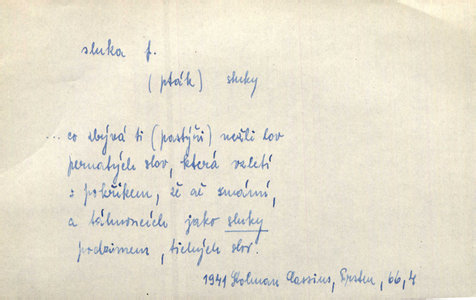 sluka f.
(pták) sluky
... co zbývá ti (pastýři) nežli lov
pernatých slov, která vzletí
s pokřikem, že až zmámí,
a táhnoucích jako sluky
podzimem, tichých slov.
1941 Holman Cassius, 66, 4